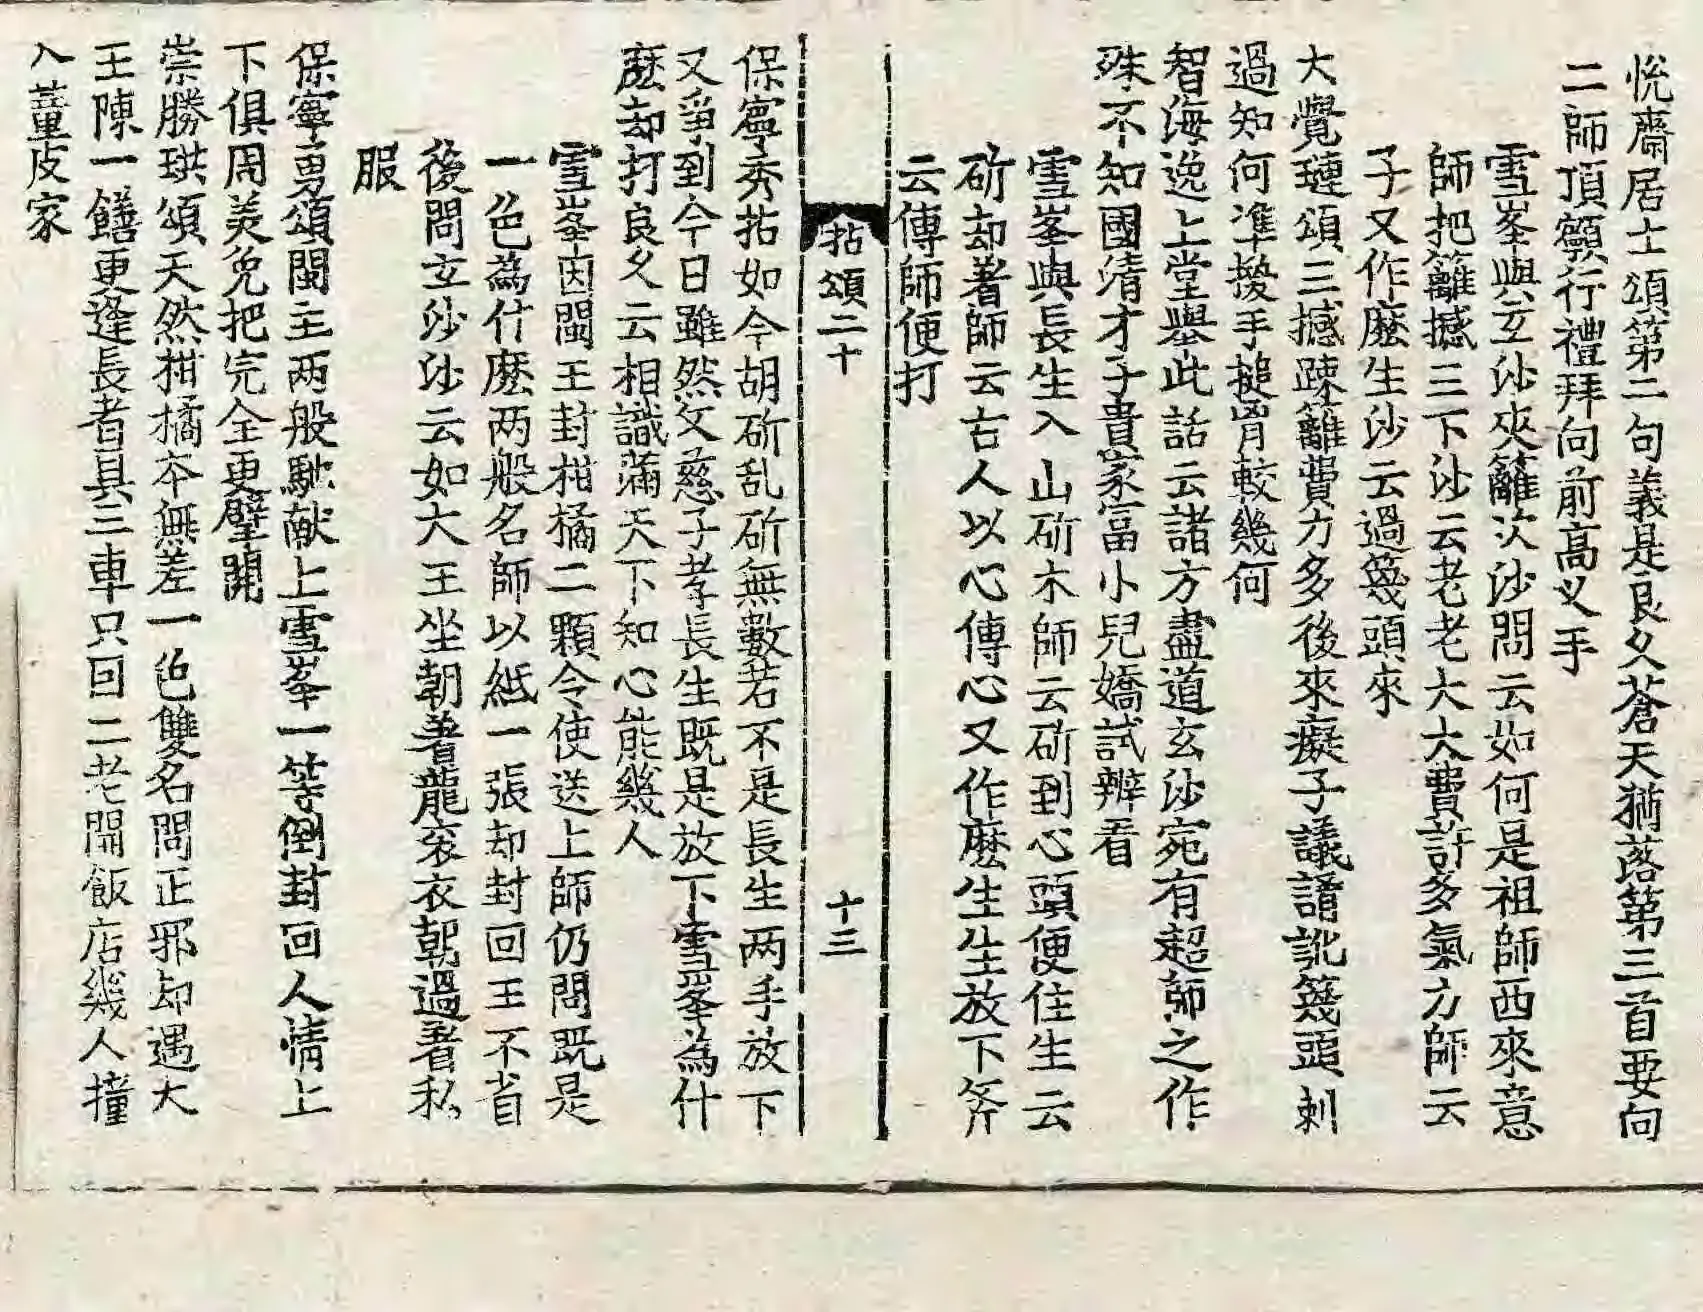 悅齋居士頌第二句義是良久蒼天猶落第三首要向
二師頂𩕳行禮拜向前高叉手
雪峯與玄沙夾籬次沙問云如何是祖師西來意
師把籬撼三下沙云老老大大費許多氣力師云
子又作麽生沙云過篾頭來
大覺璉頌三撼踈籬費力多後來癡子議譊訛篾頭刺
過知何準擬手搥胷較幾何
智海逸上堂舉此話云諸方盡道玄沙宛有超師之作
殊不知國清才子貴家富小兒嬌試辨看
雪峯與長生入山斫木師云斫到心頭便住生云
斫却著師云古人以心傳心又作麽生生放下斧
云傳師便打
拈頌二十
十三
保寧秀拈如今胡斫乱斫無數若不是長生两手放下
又爭到今日雖然父慈子孝長生既是放下雪峯為什
麽却打良久云相識滿天下知心能幾人
雪峯因閩王封柑橘二顆令使送上師仍問既是
一色為什麽两般名師以紙一張却封回王不省
後問玄沙沙云如大王坐朝著龍衮衣朝過著私
服
保寧勇頌閩主两般馳献上雪峯一等倒封回人情上
下俱周美免把完全更擘開
崇勝珙頌天然柑橘夲無差一色雙名問正邪却遇大
王陳一饍更逢長者具三車只回二老開飯店幾人撞
入菫皮家